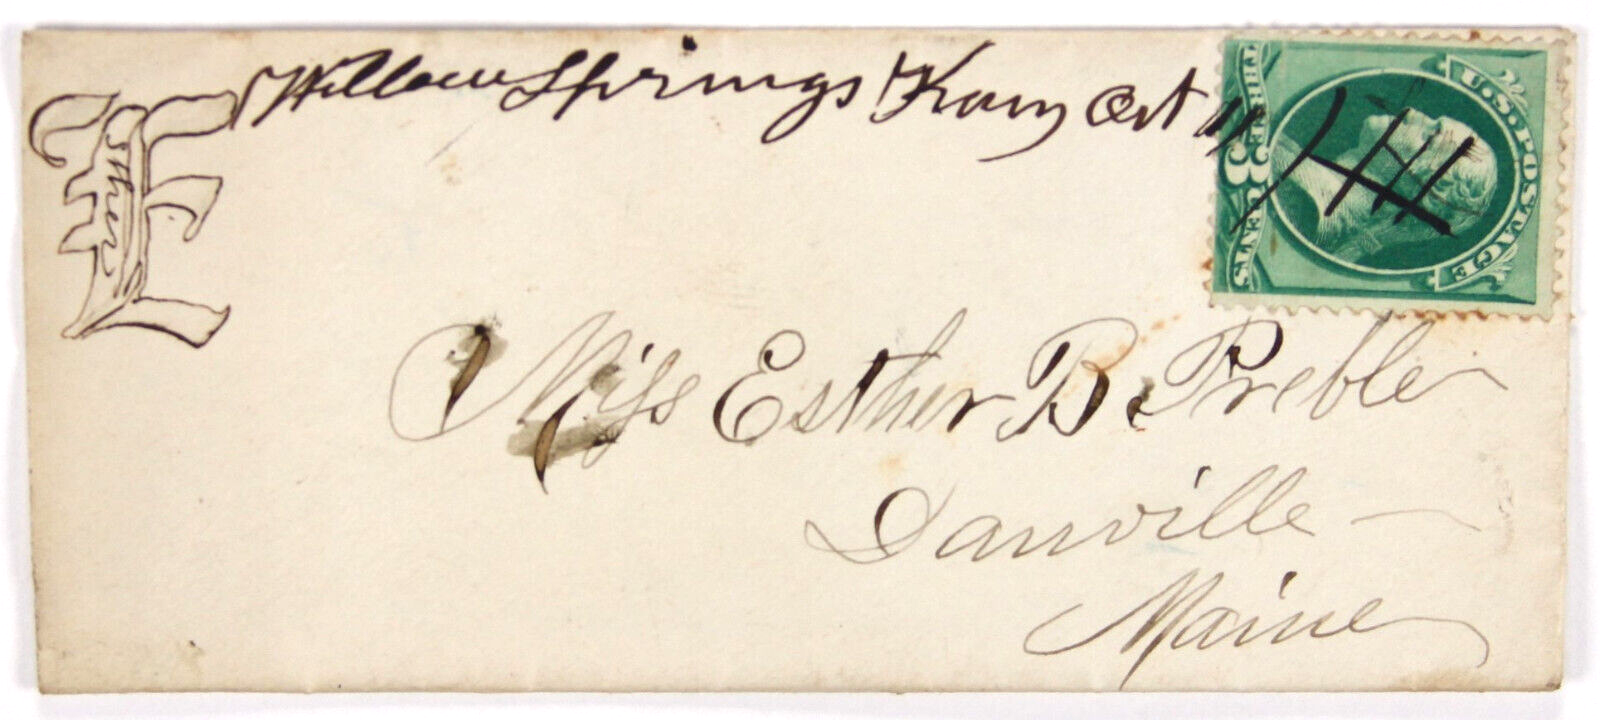 Willow Springs Kan Oct 11
Esther
U.S. POSTAGE
THREE 3 CENTS
Miss Esther B. Preble
Danville
Maine